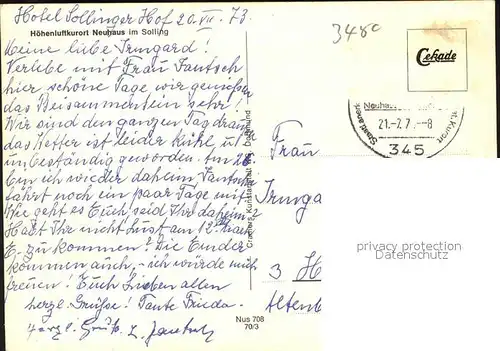 Hotel Sollinger Hof 20. VII. 73
Höhenluftkurort Neuhaus im Solling
Meine liebe Irmgard!
Verlebe mit Frau Jantsch
hier schöne Tage wir genießen
das Beisammensein sehr!
Wir sind den ganzen Tag drauß
das Wetter ist leider kühl, u
unbeständig geworden. Am 26.
bin ich wieder daheim Jantsch
fährt noch ein paar Tage mit
Wie geht es Euch seid Ihr daheim?
Habt Ihr nicht Lust am 12.
E. zu kommen? Die Linder
kommen auch, ich würde mich
freuen! Euch Lieben allen
herzl. Grüße! Tante Frieda
Herzl. Grüße L. Jantsch
Nus 708
70/3
Cramers Kunstanstalt Dortmund
3480
Cekade
Neuhaus
21.-7.7 -8
Staatl. anerk. Kurort
345
Frau
Irmga
3 H
Altenbe
privacy protection
Datenschutz